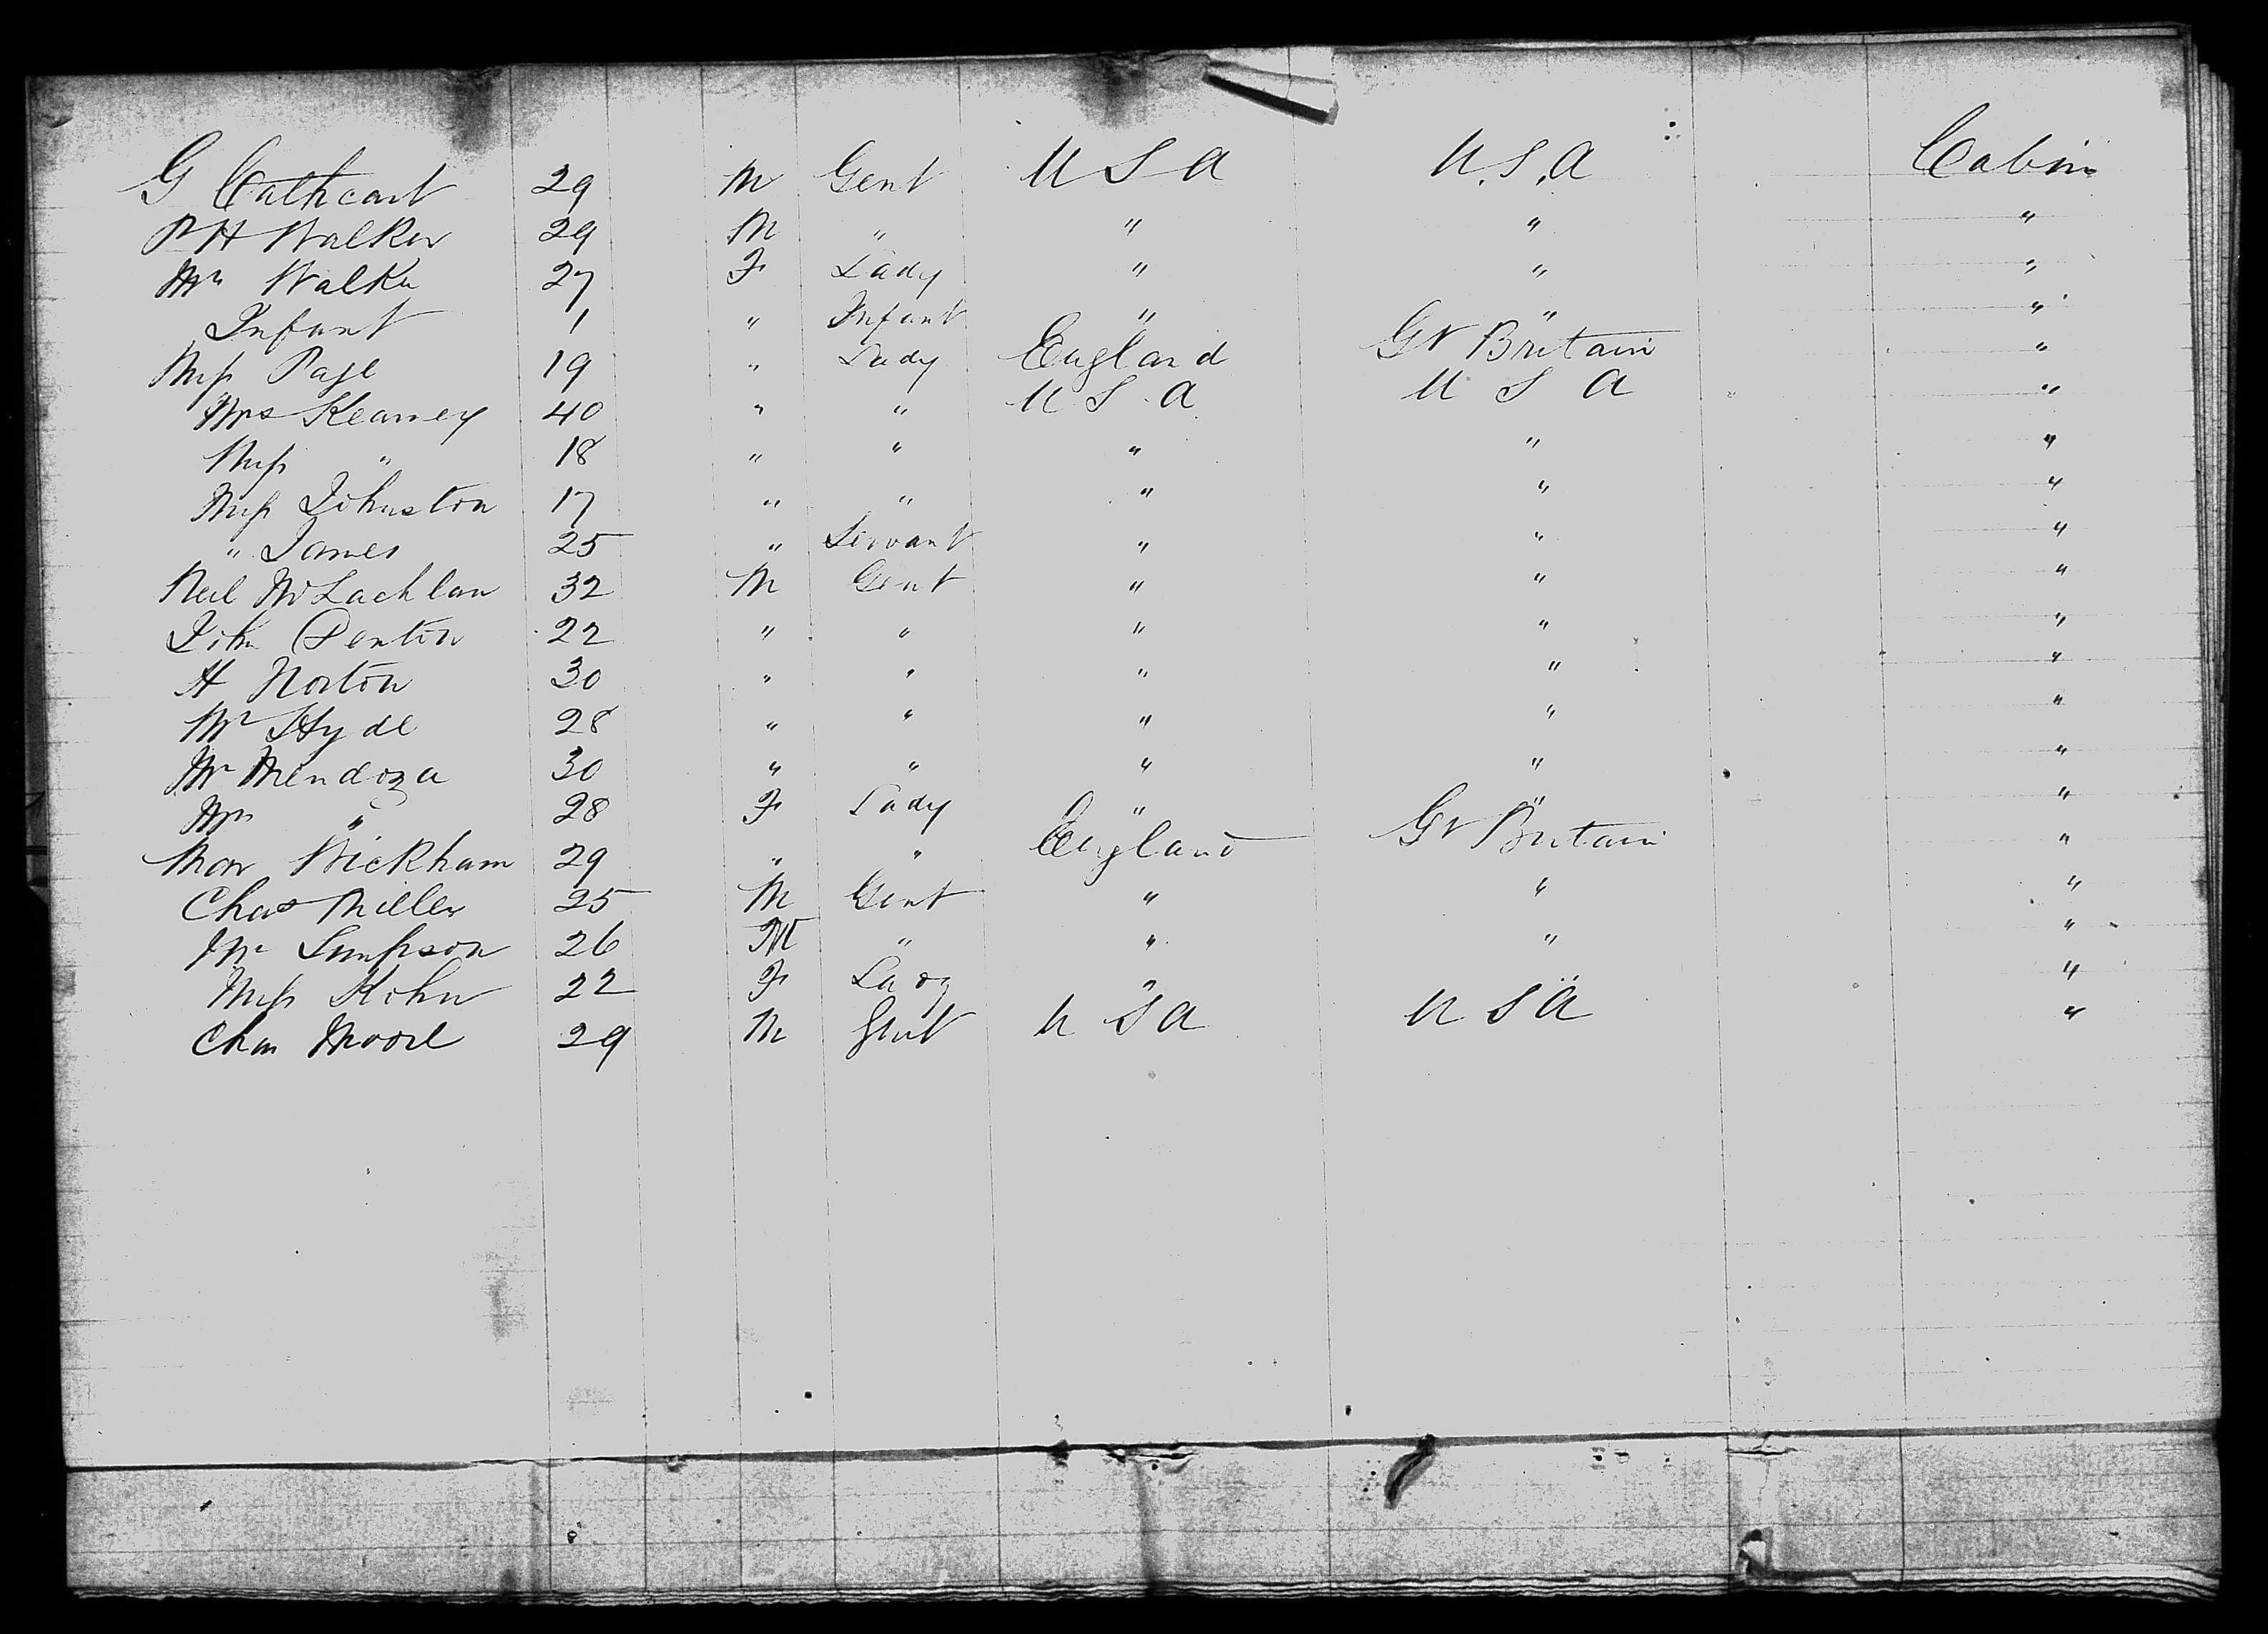 G Cathcart 29 M Gent U S A U.S.A Cabin
P H Walker 29 M " " " "
Mrs Walker 27 F Lady " " "
Infant 1 " Infant " " "
Miss Page 19 " Lady England Gt Britain "
Mrs Kearney 40 " " U S A U S A "
Miss " 18 " " " " "
Miss Johnston 17 " " " " "
" James 25 " Servant " " "
Neil McLachlan 32 M Gent " " "
John Denton 22 " " " " "
H Norton 30 " " " " "
Mr Hyde 28 " " " " "
Mr Mendoza 30 " " " " "
Mrs " 28 F Lady " " "
Wickham 29 " " England Gt Britain "
Chas Miller 25 M Gent " " "
Mr Simpson 26 M " " " "
Miss Kohn 22 F Lady " " "
Chas Moore 29 M Gent U S A U S A "